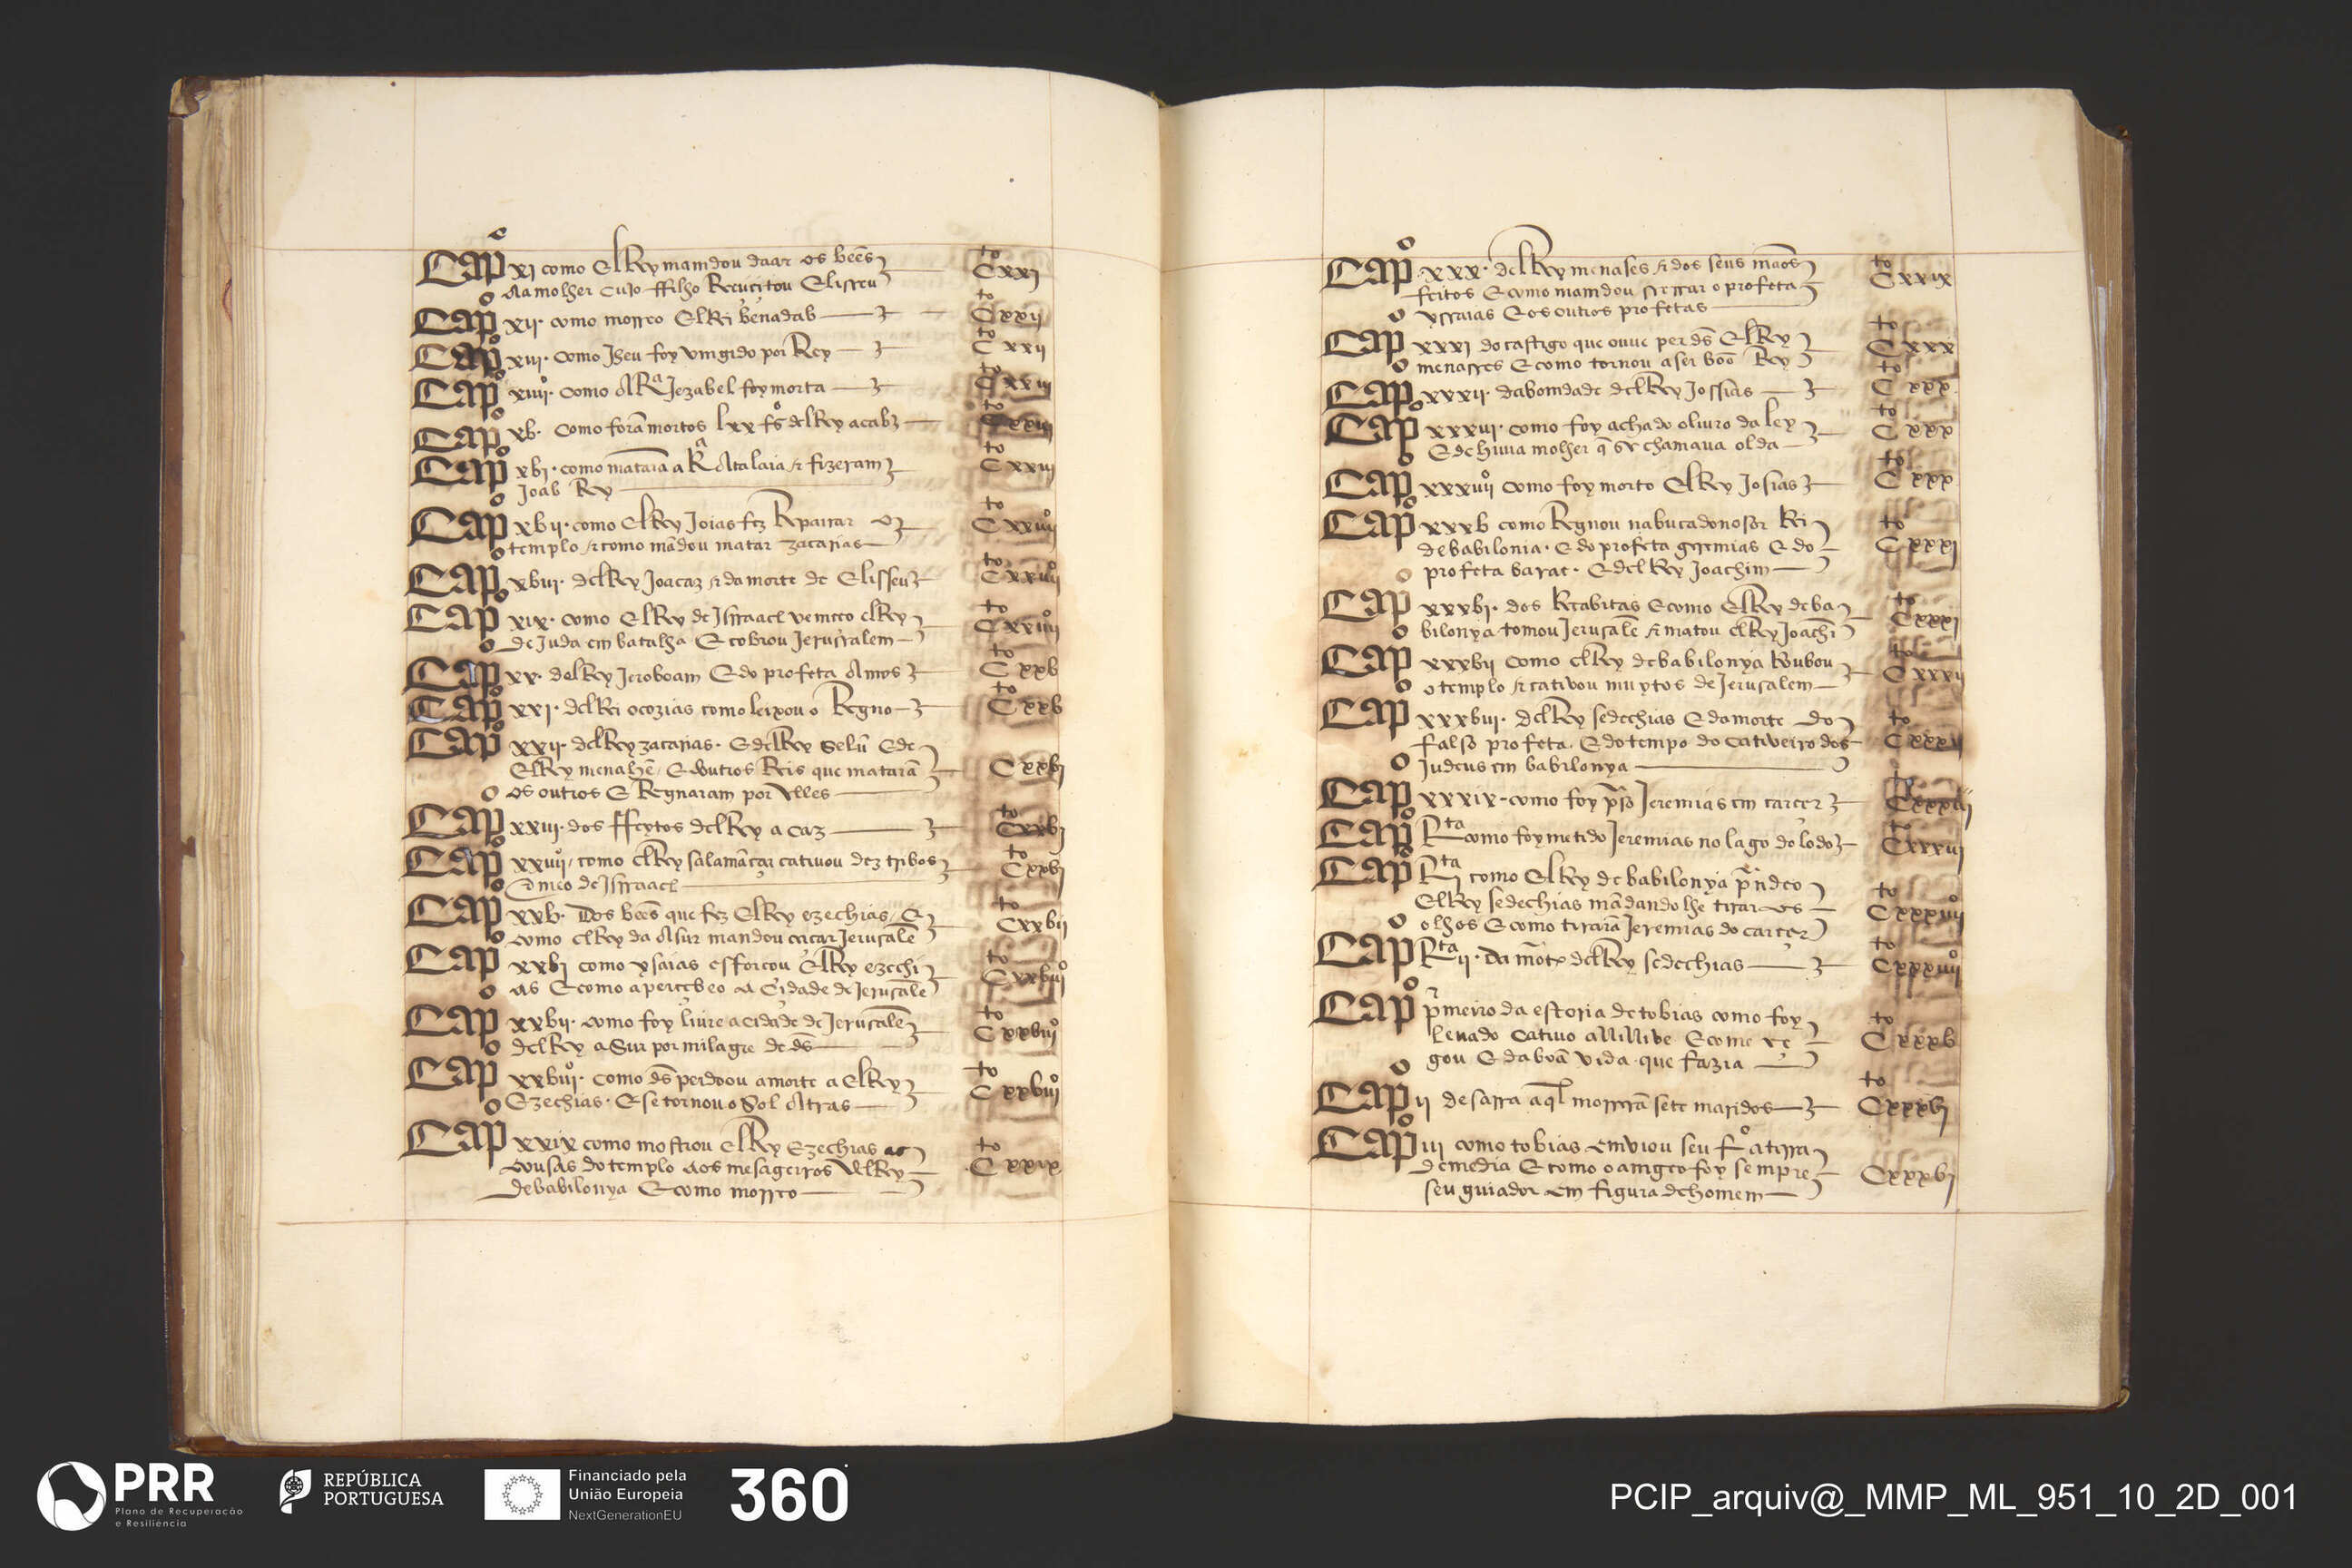 CAPº xj como ElRey mamdou daar os beẽs
Aa molher cujo ffilho Recucitou Elisseu
to Cxxj
CAPº xij. como morreo ElRei benadab
to Cxxij
CAPº xiij. como Jheu foy vmgido por Rey
to Cxxij
CAPº xiiijº. como A Rª Jezabel foy morta
to Cxxiij
CAPº xb. Como forã mortos lxx fºs delRey acab
to Cxxiij
CAPº xbj. como matarã a Rª Atalaia & fizeram
Joab Rey
to Cxxiij
CAPº xbij. como ElRey Joias fez Repairar o
templo & como mãdou matar zacarias
to Cxxiiijº
CAPº xbiij. delRey Joacaz & da morte de Elisseu
to Cxxiiijº
CAPº xix. como ElRey de Jsrraael vemceo elRey
de Juda em batalha E cobrou Jerusralem
to Cxxiiijº
CAPº xx. delRey Jeroboam E do profeta Amos
to Cxxb
CAPº xxj. delRei ocozias como leixou o Regno
to Cxxb
CAPº xxij. delRey zacarias. E delRey Selũ E de
ElRey menahẽ, E doutros Reis que matarã
os outros E Regnaram por elles
Cxxbj
CAPº xxiij. dos ffeytos delRey acaz
to Cxxbj
CAPº xxiiijº, como elRey salamãcar catiuou dez tribos
E meo de Jsrraael
to Cxxbj
CAPº xxb. Dos beẽs que fez ElRey ezechias, E
como elRey da Asur mandou cercar Jerusalẽ
to Cxxbij
CAPº xxbj como ysaias esforcou ElRey ezechi
as E como apercebeo a Cidade de Jerusalẽ
to Cxxbiijº
CAPº xxbij. como foy liure a cidade de Jerusalẽ
delRey aSur por milagre de ds̃
to Cxxbiijº
CAPº xxbiijº. como ds̃ perdoou a morte a ElRey
Ezechias. E se tornou o Sol Atras
to Cxxbiijº
CAPº xxix como mostrou ElRey Ezechias as
cousas do templo aos mesageiros delRey
de babilonya E como morreo
to Cxxix
CAPº xxx. delRey menases & dos seus maãos
feitos E como mamdou serrar o profeta
ysraias E os outros profetas
to Cxxix
CAPº xxxj do castigo que ouue per ds̃ ElRey
menasses E como tornou a ser boõ Rey
to Cxxx
CAPº xxxij. da bomdade delRey Jossias
to Cxxx
CAPº xxxiij. como foy achado o liuro da ley
E de huũa molher q̃ se chamaua olda
to Cxxx
CAPº xxxiiijº como foy morto ElRey Josias
to Cxxx
CAPº xxxb como Regnou nabucadonosor Rei
de babilonia. E do profeta geremias E do
profeta barac. E delRey Joachim
to Cxxxj
CAPº xxxbj. dos Recabitas E como ElRey de ba
bilonya tomou Jerusalẽ & matou elRey Joachĩ
to Cxxxj
CAPº xxxbij como elRey de babilonya Roubou
o templo & catiuou muytos de Jerusalem
to Cxxxij
CAPº xxxbiij. delRey sedechias E da morte do
falso profeta. E do tempo do catiueiro dos
Judeus em babilonya
to Cxxxij
CAPº xxxix. como foy p̃so Jeremias em carcer
to Cxxxiij
CAPº Rta como foy metido Jeremias no lago do lodo
to Cxxxiij
CAPº Rtaj como ElRey de babilonya p̃ndeo
ElRey sedechias mãdandolhe tirar os
olhos E como tirarã Jeremias do carcer
to Cxxxiiijº
CAPº Rtaij. da morte delRey sedechias
to Cxxxiiijº
CAPº p̃meiro da estoria de tobias como foy
leuado catiuo a Niniue. E como ce
gou E da boã vida que fazia
to Cxxxb
CAPº ij de sarra a q̃l morrerã sete maridos
to Cxxxbj
CAPº iij como tobias emviou seu fº a terra
de media E como o amgeo foy sempre
seu guiador em figura de homem
Cxxxbj
PRR
Plano de Recuperação
e Resiliência
REPÚBLICA
PORTUGUESA
Financiado pela
União Europeia
NextGenerationEU
360
PCIP_arquiv@_MMP_ML_951_10_2D_001